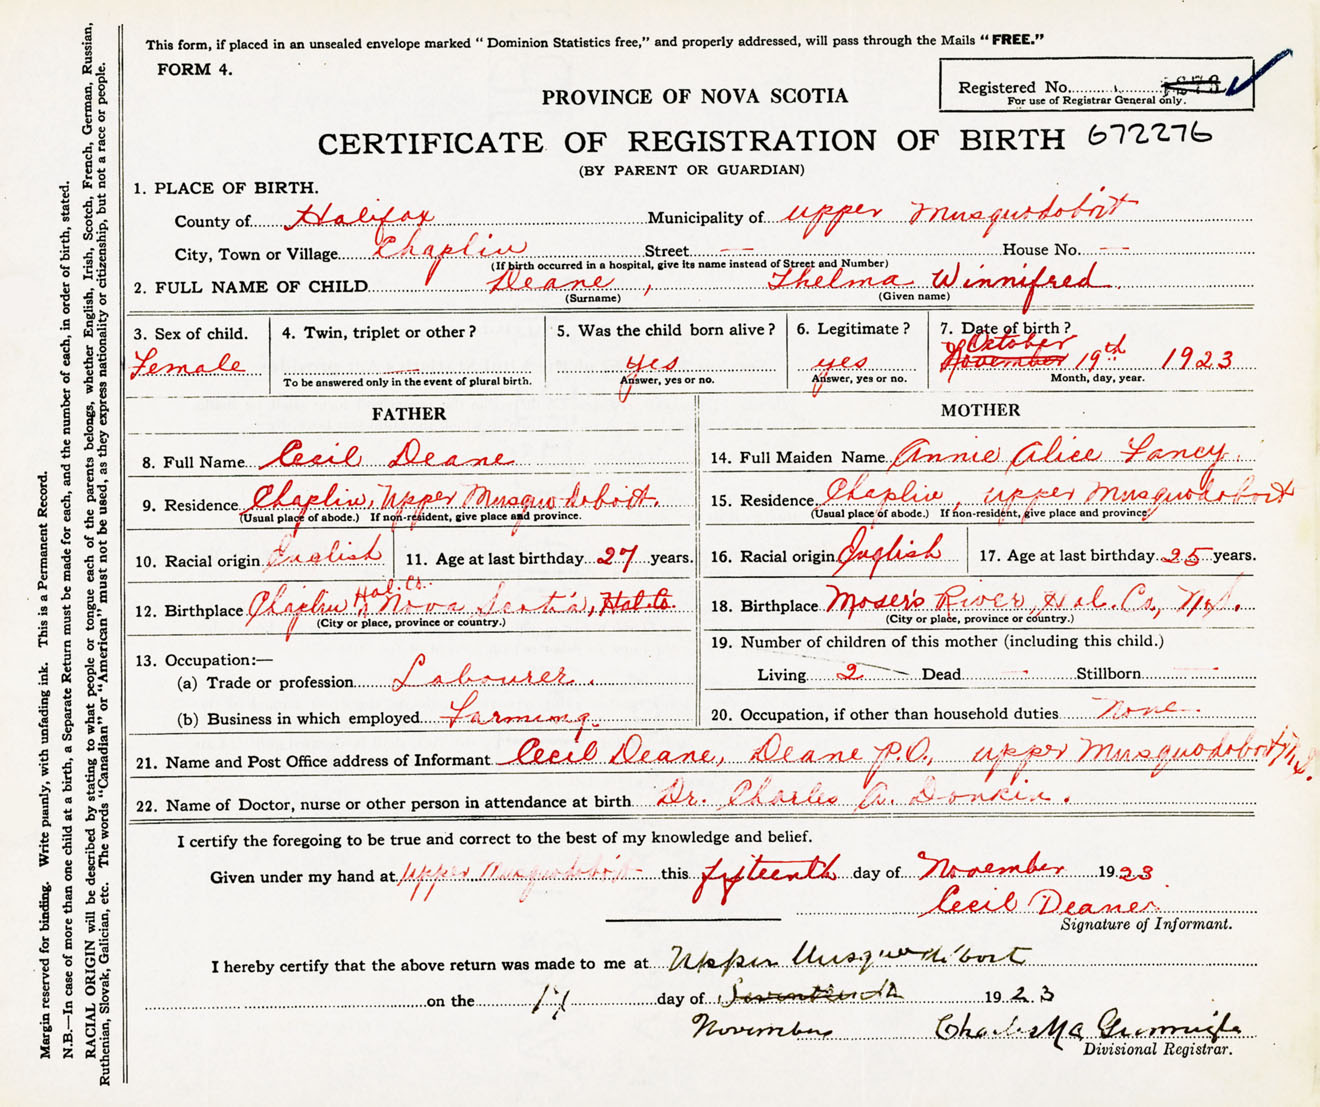 This form, if placed in an unsealed envelope marked “ Dominion Statistics free,” and properly addressed, will pass through the Mails “ FREE.”
FORM 4.
Registered No.
For use of Registrar General only.
PROVINCE OF NOVA SCOTIA
CERTIFICATE OF REGISTRATION OF BIRTH 672276
(BY PARENT OR GUARDIAN)
1. PLACE OF BIRTH.
County of Halifax Municipality of Upper Musquodoboit
City, Town or Village Chaplin Street — House No. —
(If birth occurred in a hospital, give its name instead of Street and Number)
2. FULL NAME OF CHILD Deane, Thelma Winnifred
(Surname) (Given name)
3. Sex of child. 4. Twin, triplet or other? 5. Was the child born alive? 6. Legitimate? 7. Date of birth?
October
Female — yes yes November 19th 1923
To be answered only in the event of plural birth. Answer, yes or no. Answer, yes or no. Month, day, year.
FATHER MOTHER
8. Full Name Cecil Deane 14. Full Maiden Name Annie Alice Fancy.
9. Residence Chaplin, Upper Musquodoboit. 15. Residence Chaplin, Upper Musquodoboit
(Usual place of abode.) If non-resident, give place and province. (Usual place of abode.) If non-resident, give place and province.
10. Racial origin English 11. Age at last birthday 27 years. 16. Racial origin English 17. Age at last birthday 25 years.
Hal. Co.
12. Birthplace Chaplin, Nova Scotia, Hal. Co. 18. Birthplace Moser's River, Hal. Co., N.S.
(City or place, province or country.) (City or place, province or country.)
19. Number of children of this mother (including this child.)
13. Occupation:—
(a) Trade or profession Labourer. Living 2 Dead — Stillborn —
(b) Business in which employed Farming. 20. Occupation, if other than household duties none.
21. Name and Post Office address of Informant Cecil Deane, Deane P.O., Upper Musquodoboit, N.S.
22. Name of Doctor, nurse or other person in attendance at birth Dr. Charles A. Donkin.
I certify the foregoing to be true and correct to the best of my knowledge and belief.
Given under my hand at Upper Musquodoboit this fifteenth day of November 1923
Cecil Deane
Signature of Informant.
I hereby certify that the above return was made to me at Upper Musquodoboit
on the 17 day of Seventeenth 1923
November Charles
Divisional Registrar.
Margin reserved for binding. Write plainly, with unfading ink. This is a Permanent Record.
N.B.—In case of more than one child at a birth, a Separate Return must be made for each, and the number of each, in order of birth, stated.
RACIAL ORIGIN will be described by stating to what people or tongue each of the parents belongs, whether English, Irish, Scotch, French, German, Russian,
Ruthenian, Slovak, Galician, etc. The words “Canadian” or “American” must not be used, as they express nationality or citizenship, but not a race or people.